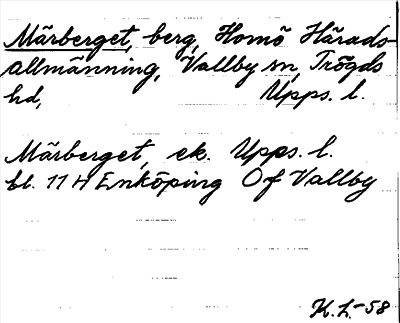 Märberget, berg, Homö Härads-
allmänning, Vallby sn, Trögds
hd, Upps. l.
Märberget, ek. Upps. l.
bl. 11 H Enköping Of Vallby
K. L-58